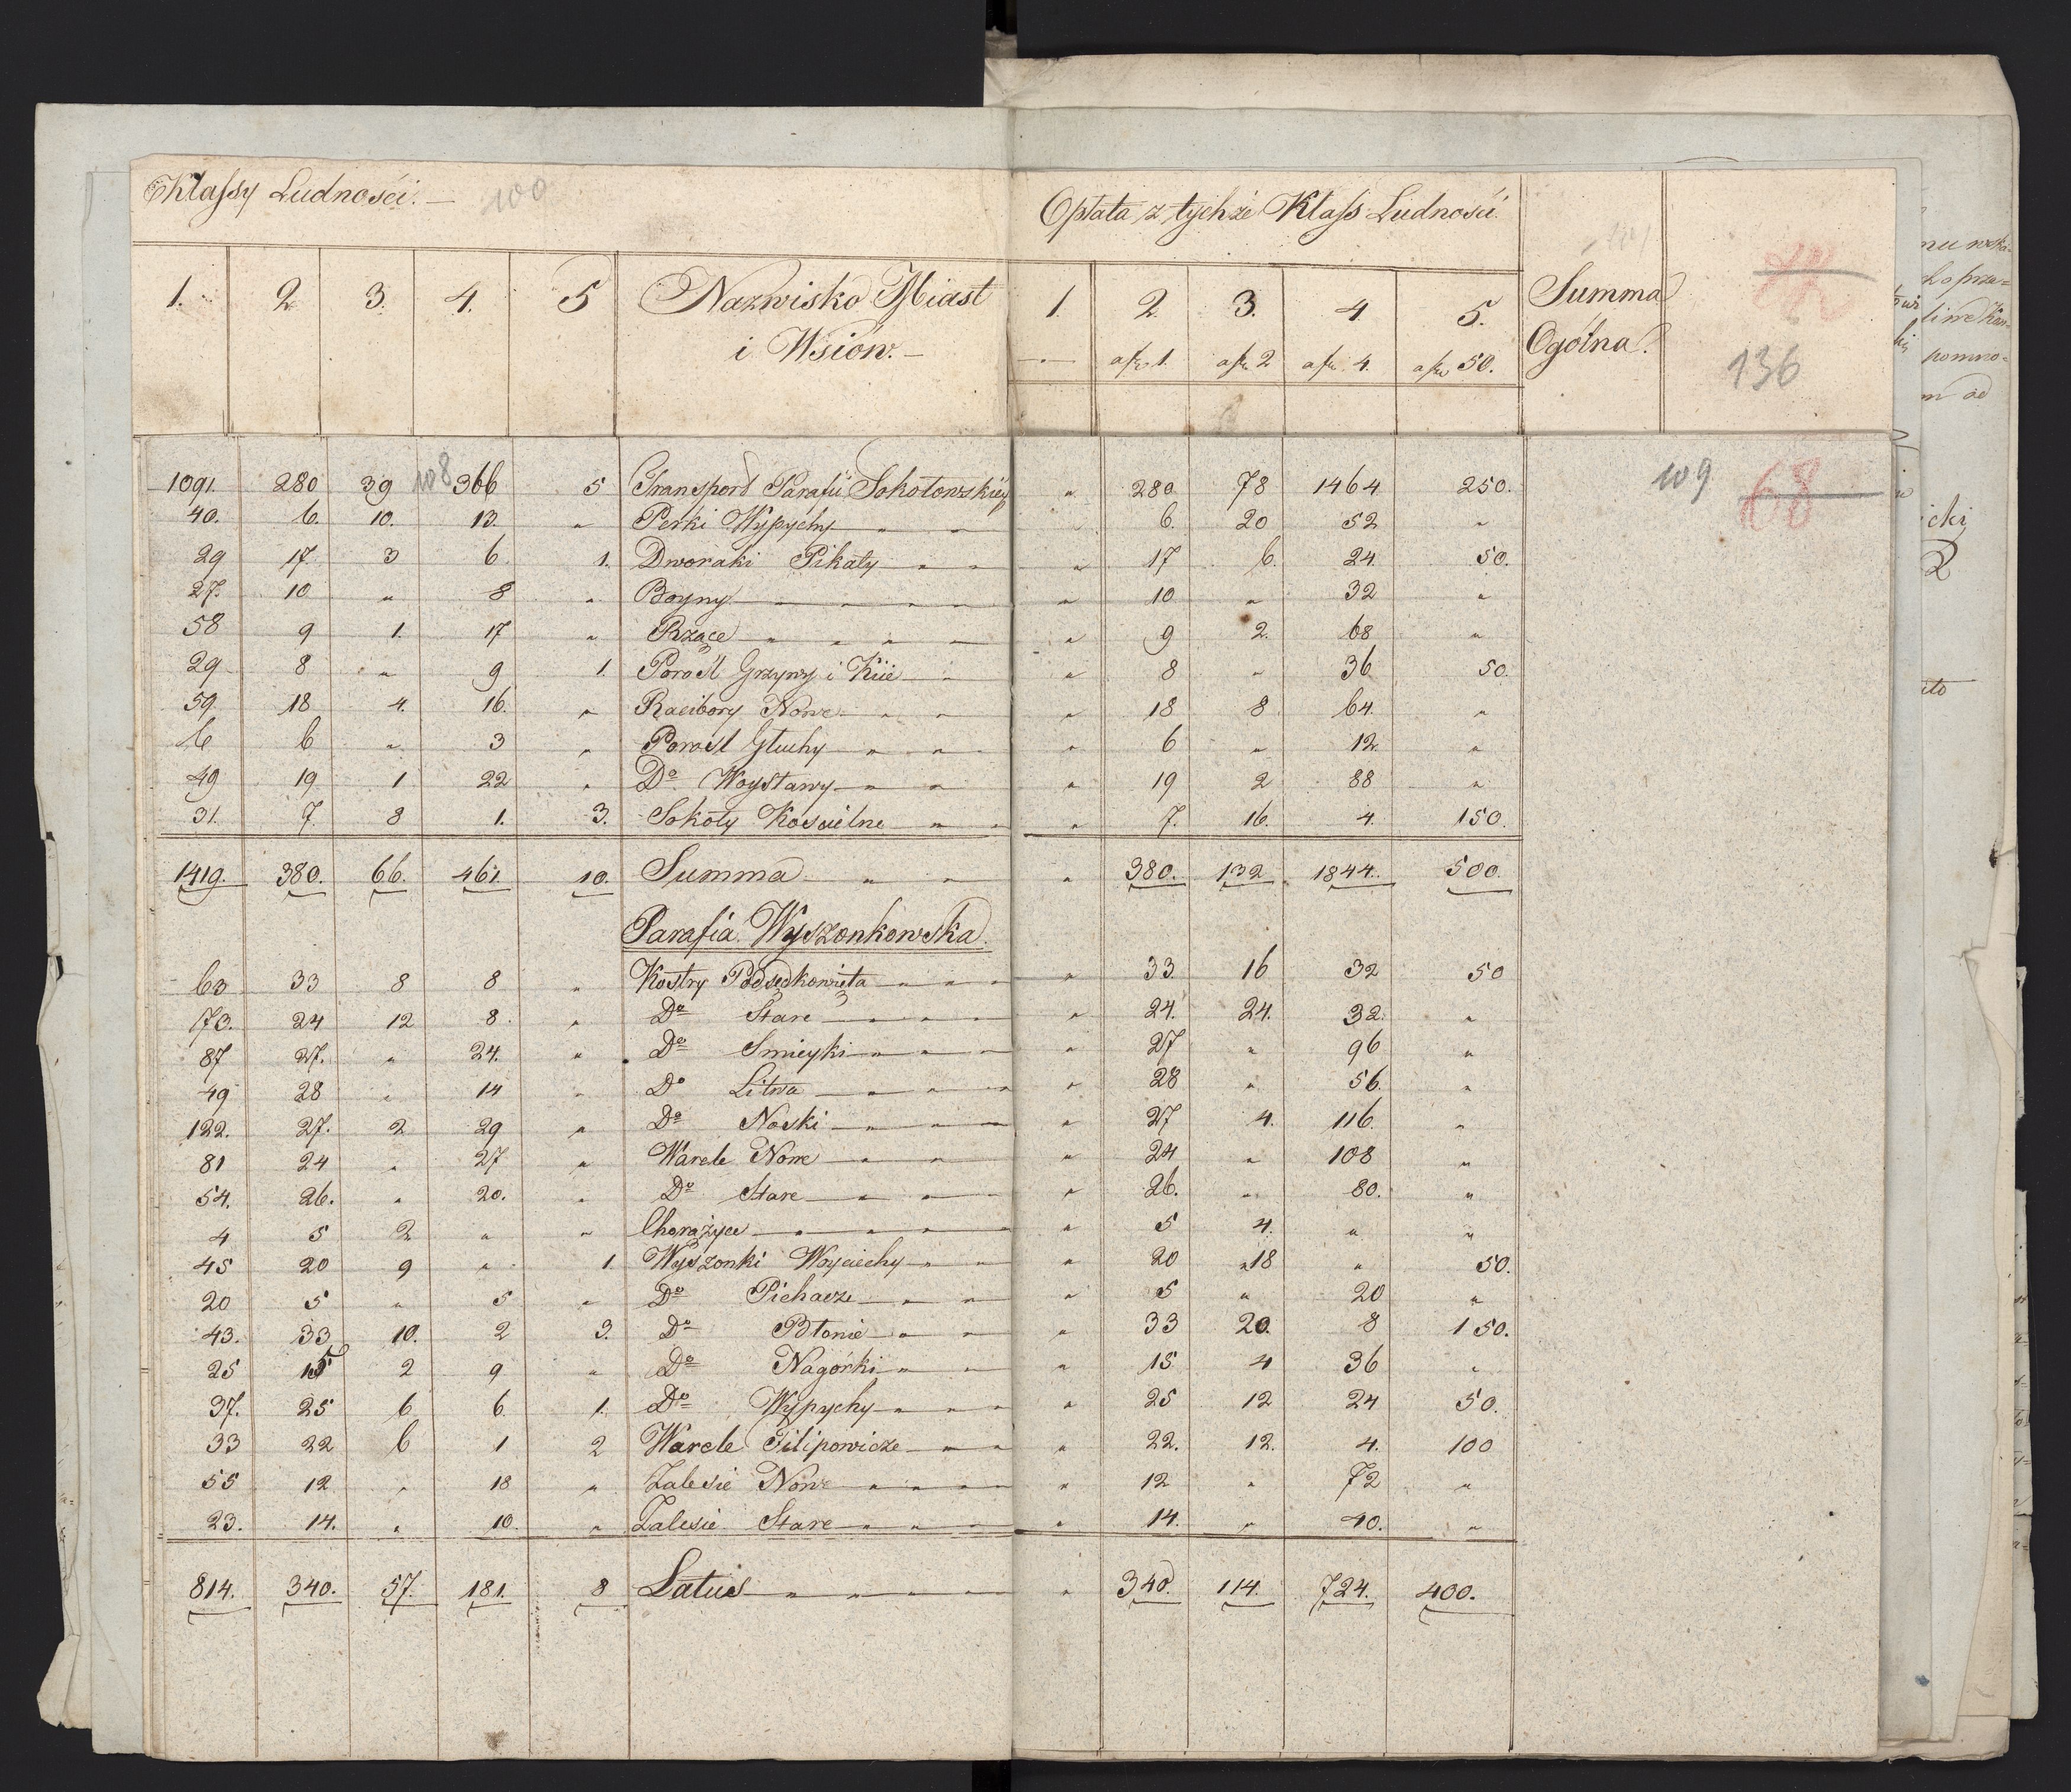 Klassy Ludności. — 100
Opłata z tychże Klass Ludności
1. 2 3. 4. 5 Nazwisko Miast i Wsiów. — 1. 2. 3. 4. 5. Summa Ogólna.
— a fl 1. a fl 2 a fl 4. a fl 50.
136
108
109 68
1091. 280 39 366 5 Transport Parafii Sokołowskiey " 280 78 1464 250.
40. 6. 10. 13. " Perki Wypychy " " " 6. 20 52 "
29 17 3 6 1. Dworaki Pikaty " " " 17 6. 24. 50.
27. 10 " 8 " Boyny " " " " " 10 " 32 "
58 9 1. 17 " Rzące " " " " 9 2. 68 "
29 8 " 9 1. Porośl Grzywy i Kiie " " 8 " 36 50.
59. 18 4. 16. " Racibory Nowe " " " 18 8 64. "
6 6 " 3 " Porośl Głuchy " " " 6 " 12. "
49 19 1 22 " Do Woysławy " " " 19 2 88 "
31. 7. 8 1. 3. Sokoły Kościelne " " " 7. 16. 4. 150.
1419. 380. 66. 461 10. Summa " " " 380. 132 1844. 500.
Parafia Wyszonkowska.
63 33 8 8 " Kostry Podsędkowięta " " " " 33 16 32 50
73. 24 12 8. " Do Stare " " " " 24. 24. 32. "
87 27. " 24. " Do Smieyki " " " " 27 " 96 "
49 28 " 14 " Do Litwa " " " " 28 " 56. "
122. 27. 2 29 " Do Noski " " " " 27 4. 116. "
81 24 " 27 " Warele Nowe " " " 24 " 108 "
54. 26. " 20. " Do Stare " " " " 26. " 80. "
4 5 2 " " Chorążyce " " " " " 5 4. " "
45 20 9 " 1. Wyszonki Woyciechy " " " 20 18 " 50.
20 5 " 5 " Do Piehacze " " " 5 " 20 "
43. 33 10. 2 3. Do Błonie " " " 33 20. 8 150.
25 15 2 9 " Do Nagórki " " " 15 4 36 "
37. 25 6 6. 1. Do Wypychy " " " " 25 12 24 50.
33 22 6 1 2 Warele Filipowicze " " " 22. 12. 4. 100
55 12 " 18 " Zalesie Nowe " " " " " 12 " 72 "
23. 14. " 10. " Zalesie Stare " " " " 14. " 40. "
814. 340. 57. 181. 8 Latus " " " " " 340. 114. 724. 400.